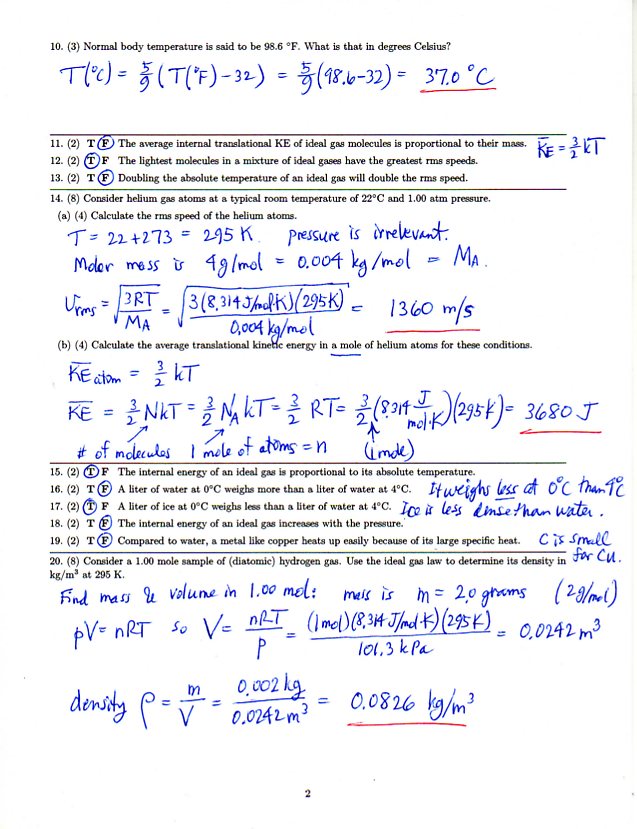 10. (3) Normal body temperature is said to be 98.6 °F. What is that in degrees Celsius?
T(°C) = 5/9 (T(°F) - 32) = 5/9 (98.6-32) = 37.0 °C
11. (2) T F The average internal translational KE of ideal gas molecules is proportional to their mass. K̅E̅ = 3/2 kT
12. (2) T F The lightest molecules in a mixture of ideal gases have the greatest rms speeds.
13. (2) T F Doubling the absolute temperature of an ideal gas will double the rms speed.
14. (8) Consider helium gas atoms at a typical room temperature of 22°C and 1.00 atm pressure.
(a) (4) Calculate the rms speed of the helium atoms.
T = 22+273 = 295 K. pressure is irrelevant.
Molar mass is 4g/mol = 0.004 kg/mol = M_A.
v_rms = √(3RT/M_A) = √(3(8.314 J/mol·K)(295K)/0.004 kg/mol) = 1360 m/s
(b) (4) Calculate the average translational kinetic energy in a mole of helium atoms for these conditions.
K̅E̅ atom = 3/2 kT
K̅E̅ = 3/2 NkT = 3/2 N_A kT = 3/2 RT = 3/2 (8.314 J/mol·K)(295K) = 3680 J
# of molecules 1 mole of atoms = n (1 mole)
15. (2) T F The internal energy of an ideal gas is proportional to its absolute temperature.
16. (2) T F A liter of water at 0°C weighs more than a liter of water at 4°C. It weighs less at 0°C than 4°C
17. (2) T F A liter of ice at 0°C weighs less than a liter of water at 4°C. Ice is less dense than water.
18. (2) T F The internal energy of an ideal gas increases with the pressure.
19. (2) T F Compared to water, a metal like copper heats up easily because of its large specific heat. C is small for Cu.
20. (8) Consider a 1.00 mole sample of (diatomic) hydrogen gas. Use the ideal gas law to determine its density in
kg/m³ at 295 K.
Find mass & volume in 1.00 mol: mass is m = 2.0 grams (2g/mol)
pV = nRT so V = nRT/p = (1mol)(8.314 J/mol·K)(295K)/101.3 kPa = 0.0242 m³
density ρ = m/V = 0.002 kg/0.0242 m³ = 0.0826 kg/m³
2